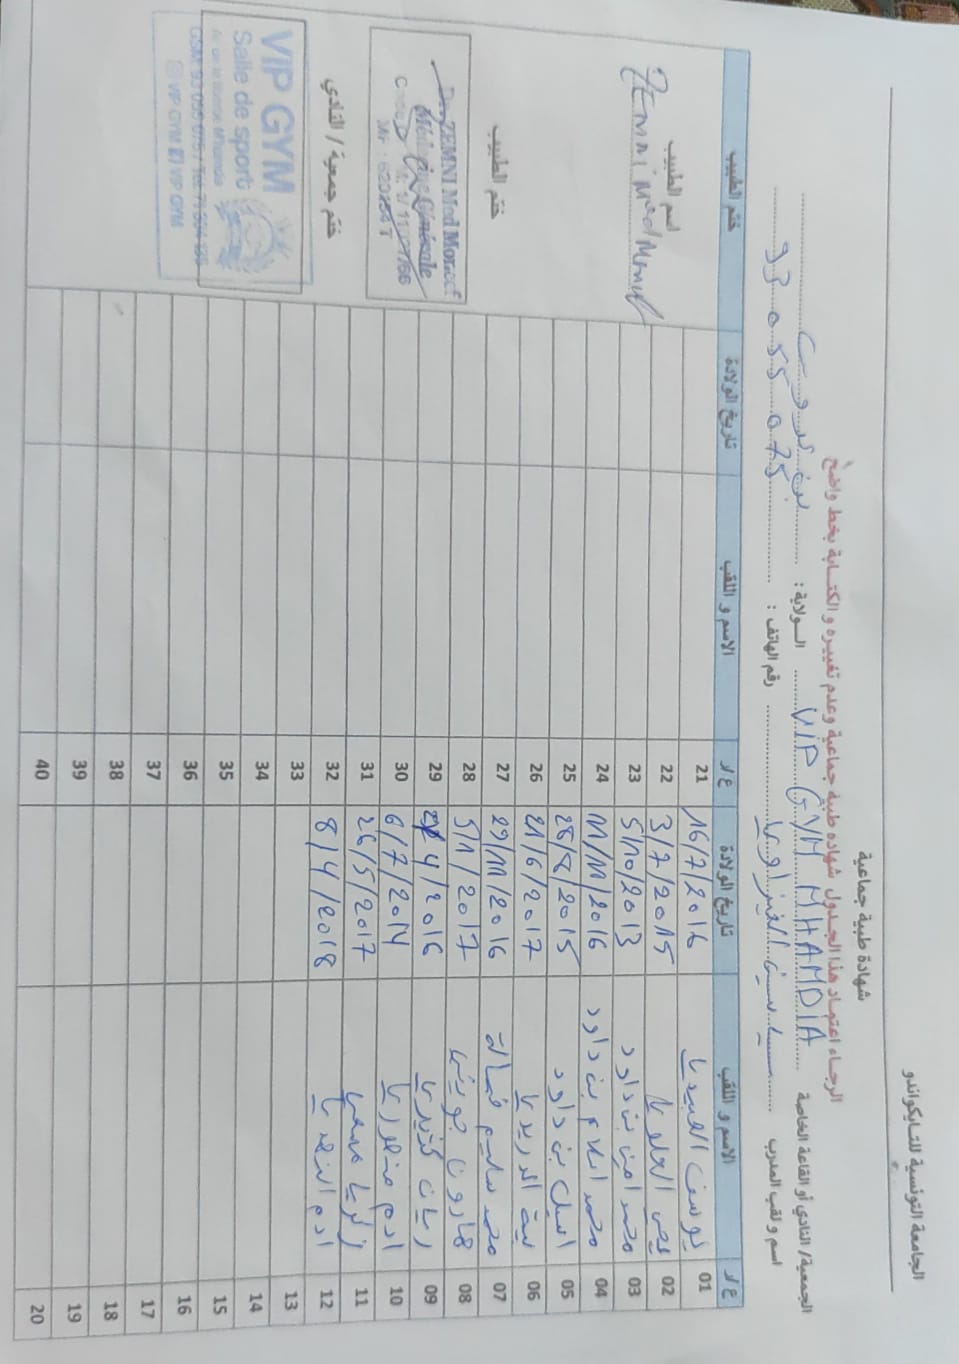 الجامعة التونسية للتايكواندو
شهادة طبية جماعية
الرجاء اعتماد هذا الجدول شهادة طبية جماعية وعدم تغييره والكتابة بخط واضح
الجمعية/ النادي أو القاعة الخاصة VIP GYM MHAMDIA الولاية : بن عروس
اسم و لقب المدرب رقم الهاتف : 93 055 075
ع/ر الاسم و اللقب تاريخ الولادة ع/ر الاسم و اللقب تاريخ الولادة ختم الطبيب
01 يوسف العبيدي 16/7/2016 21
02 العلوي 3/7/2015 22
03 محمد امين بن داود 5/10/2013 23
04 محمد بن داود 11/11/2016 24
05 اسيل بن داود 28/8/2015 25
06 الدريدي 21/6/2017 26
07 محمد سليم 29/11/2016 27
08 هارون 5/1/2017 28
09 ريان 4/2016 29
10 ادم منصوري 6/7/2014 30
11 زكريا 26/5/2017 31
12 ادم 8/4/2018 32
13 33
14 34
15 35
16 36
17 37
18 38
19 39
20 40
اسم الطبيب
Zemni Med Moncef
ختم الطبيب
ZEMNI Med Moncef
Médecine Générale
ختم جمعية / النادي
VIP GYM
Salle de sport
VIP GYM VIP GYM